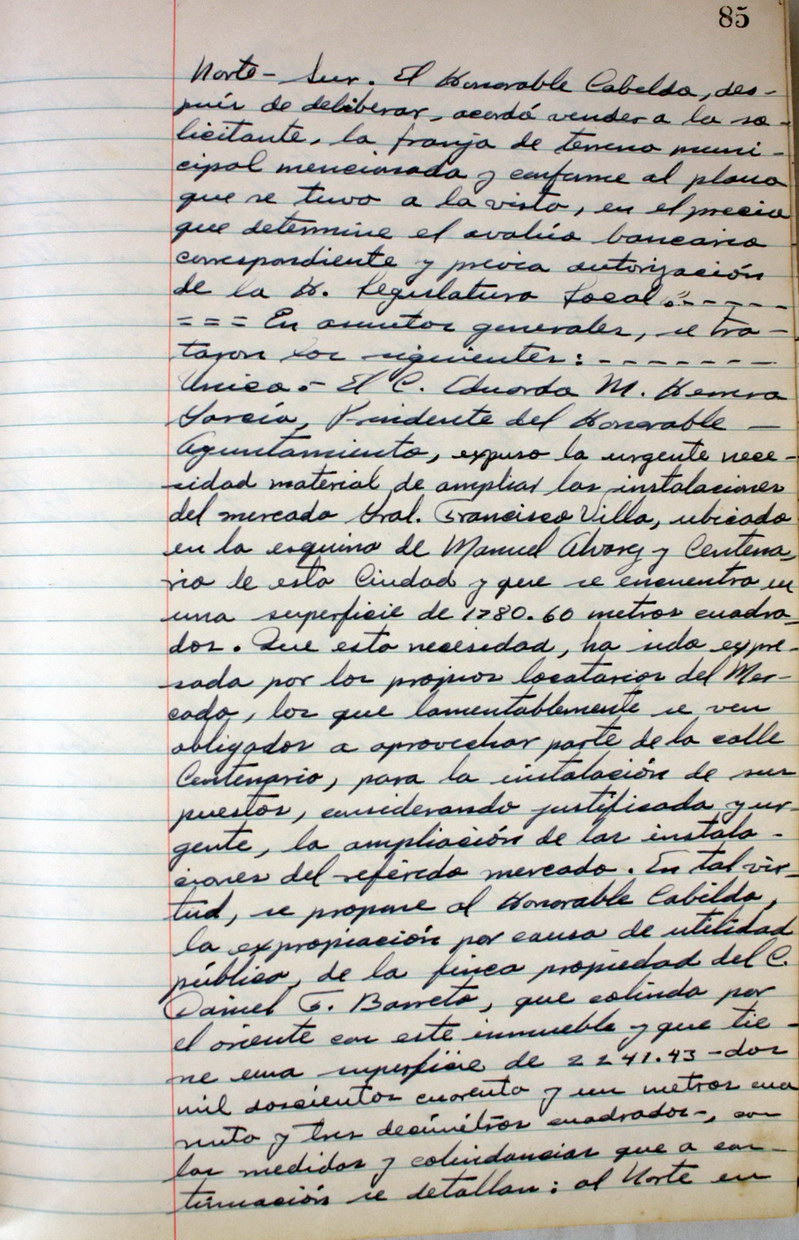 85
Norte - Sur. El Honorable Cabildo, des-
pués de deliberar, acordó vender a la so-
licitante, la franja de terreno muni-
cipal mencionada y conforme al plano
que se tuvo a la vista, en el precio
que determine el avalúo bancario
correspondiente y previa autorización
de la H. Legislatura Local.-----
=== En asuntos generales, se tra-
taron los siguientes:-------
Unico.- El C. Eduardo M. Herrera
García, Presidente del Honorable -
Ayuntamiento, expuso la urgente nece-
sidad material de ampliar las instalaciones
del mercado Gral. Francisco Villa, ubicado
en la esquina de Manuel Alvarez y Centena-
rio de esta Ciudad y que se encuentra en
una superficie de 1780.60 metros cuadra-
dos. Que esta necesidad, ha sido expre-
sada por los propios locatarios del Mer-
cado, los que lamentablemente se ven
obligados a aprovechar parte de la calle
Centenario, para la instalación de sus
puestos, considerando justificada y ur-
gente, la ampliación de las instala-
ciones del referido mercado. En tal vir-
tud, se propone al Honorable Cabildo,
la expropiación por causa de utilidad
pública, de la finca propiedad del C.
Daniel F. Barreto, que colinda por
el oriente con este inmueble y que tie-
ne una superficie de 2241.43 -dos
mil doscientos cuarenta y un metros cua
renta y tres decímetros cuadrados-, con
las medidas y colindancias que a con-
tinuación se detallan: al Norte en